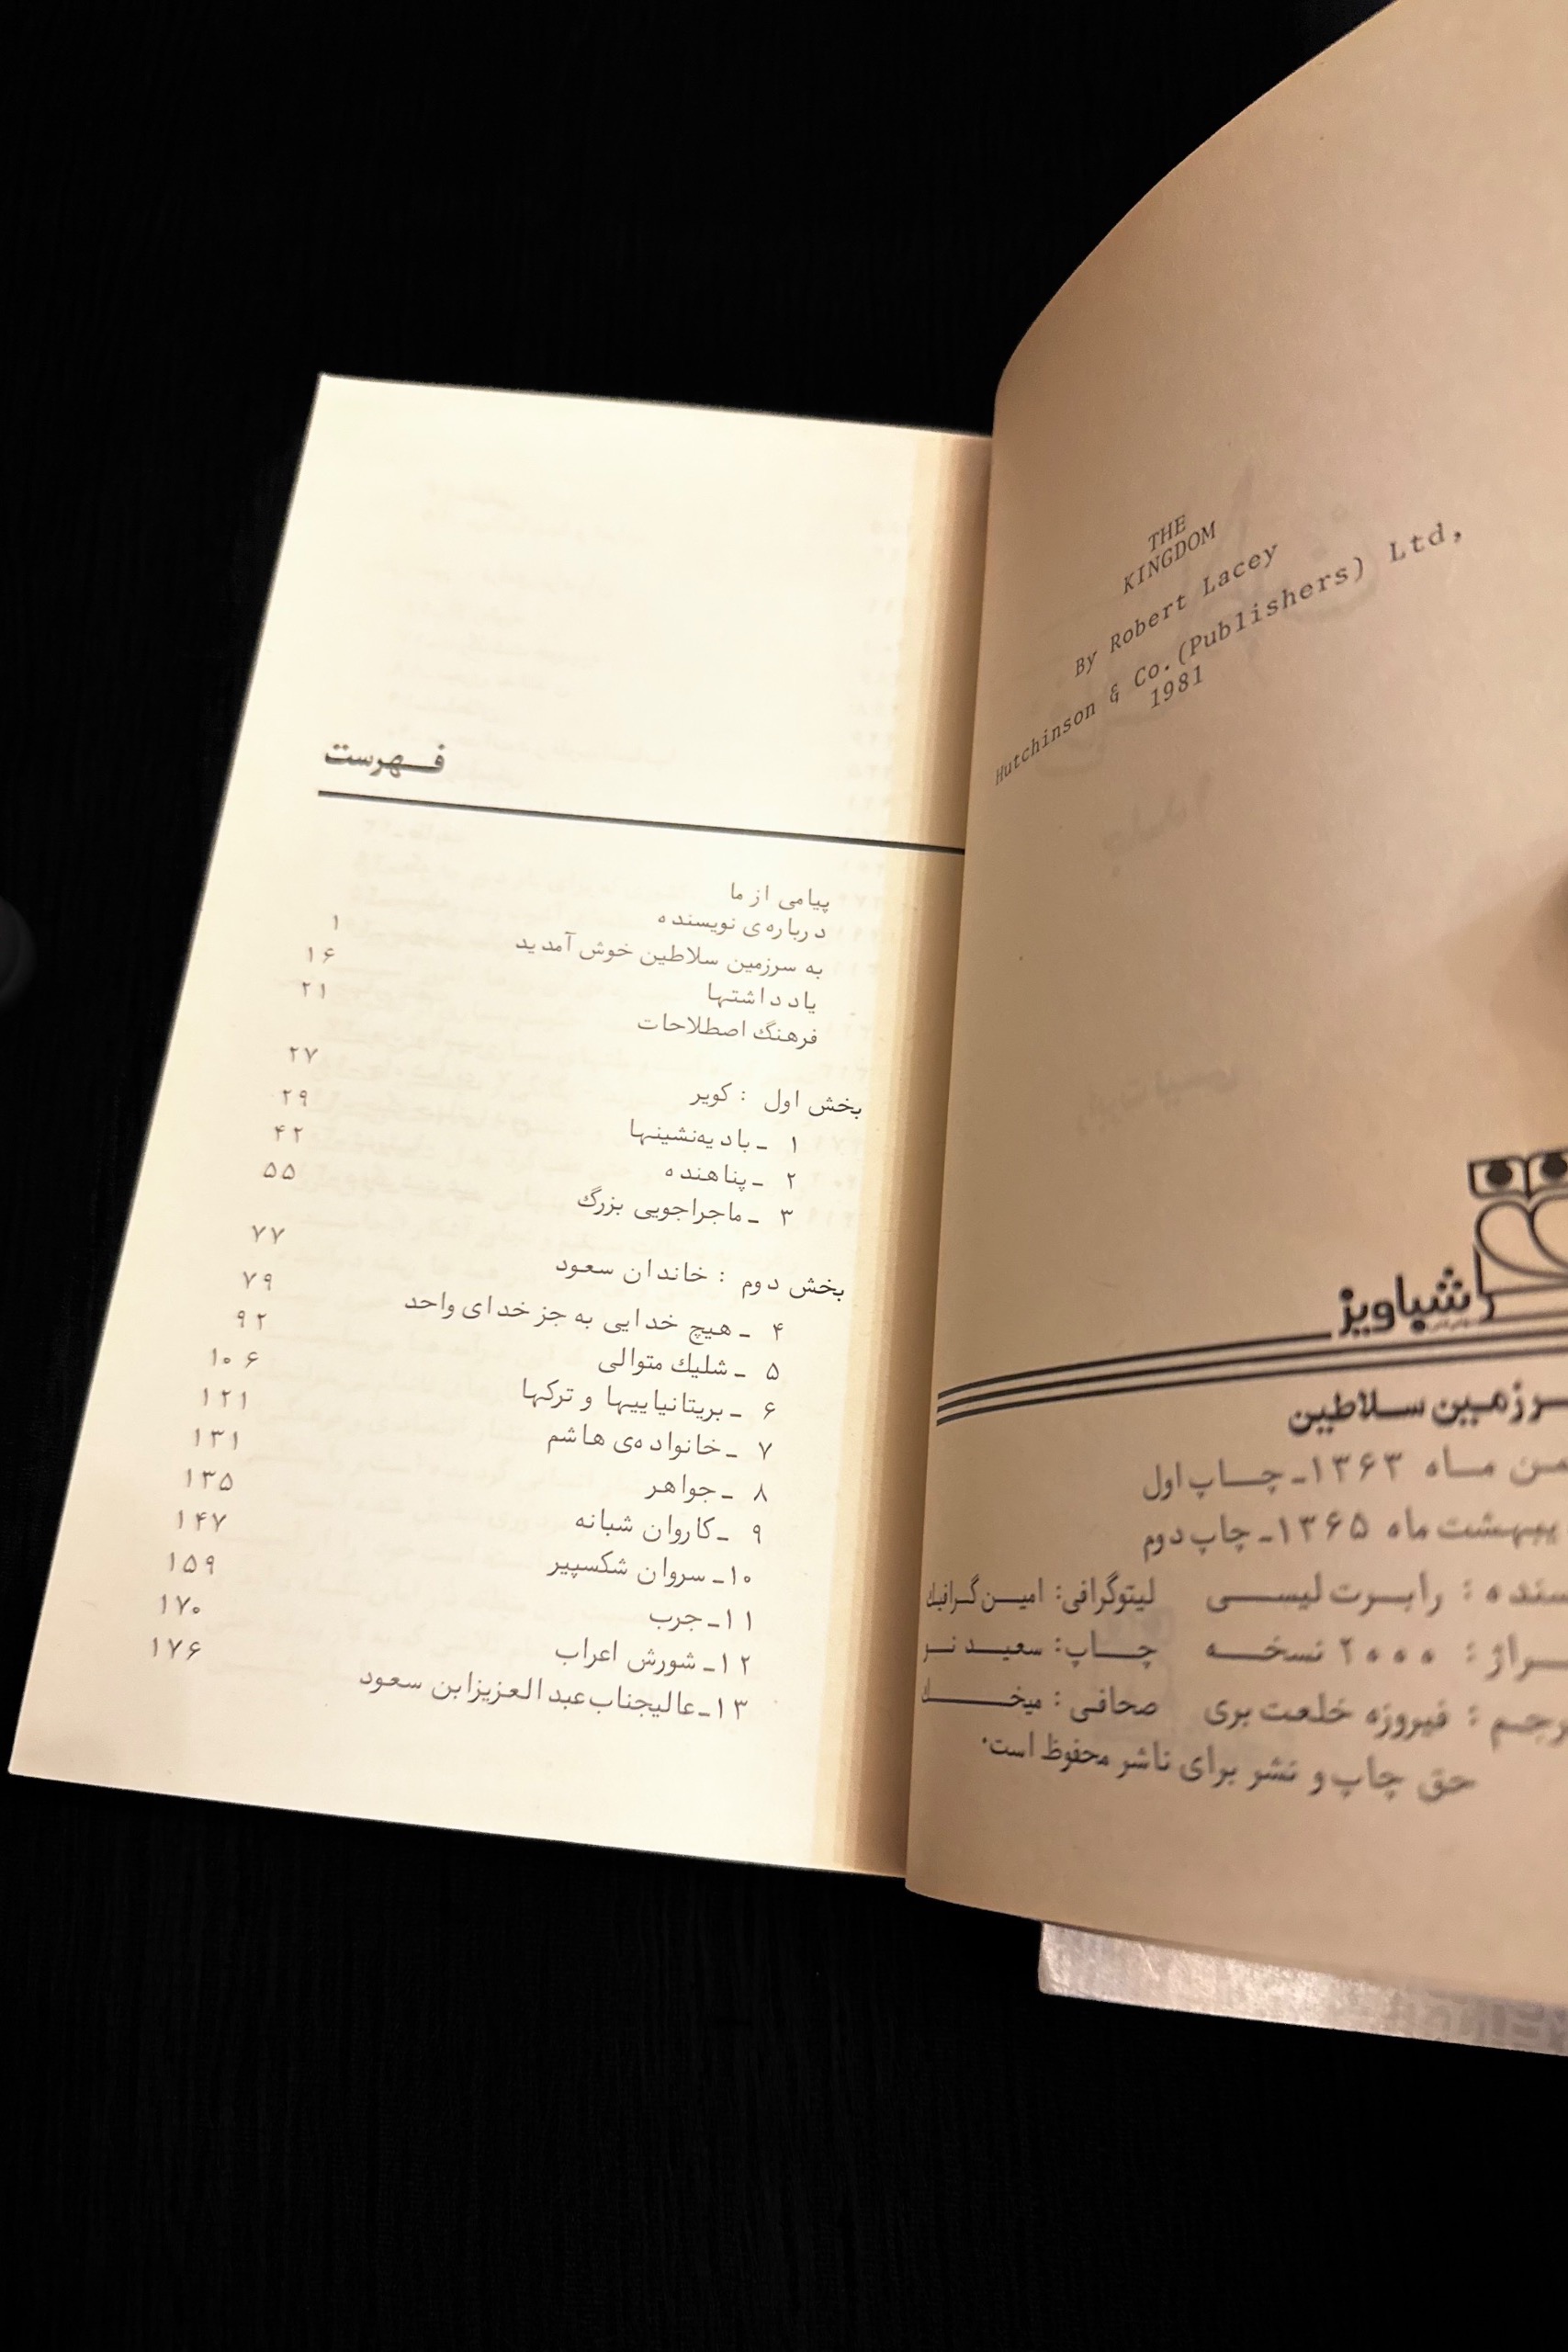 THE
KINGDOM
By Robert Lacey
Hutchinson & Co.(Publishers) Ltd,
1981
شباویز
سلاطین
ماه ۱۳۶۳ـ چاپ اول
ماه ۱۳۶۵ـ چاپ دوم
: رابرت لیسی لیتوگرافی: امین گرافیك
: ۲۰۰۰ نسخه چاپ: سعید
: فیروزه خلعت بری صحافی :
حق چاپ و نشر برای ناشر محفوظ است.
فهرست
پیامی از ما
درباره‌ی نویسنده ۱
به سرزمین سلاطین خوش آمدید ۱۶
یادداشتها ۲۱
فرهنگ اصطلاحات
بخش اول : کویر ۲۷
۱ ـ بادیه‌نشینها ۲۹
۲ ـ پناهنده ۴۲
۳ ـ ماجراجویی بزرگ ۵۵
بخش دوم : خاندان سعود ۷۷
۴ ـ هیچ خدایی به جز خدای واحد ۷۹
۵ ـ شلیك متوالی ۹۲
۶ ـ بریتانیاییها و ترکها ۱۰۶
۷ ـ خانواده‌ی هاشم ۱۲۱
۸ ـ جواهر ۱۳۱
۹ ـ کاروان شبانه ۱۳۵
۱۰ـ سروان شکسپیر ۱۴۷
۱۱ـ جرب ۱۵۹
۱۲ـ شورش اعراب ۱۷۰
۱۳ـ عالیجناب عبدالعزیز ابن سعود ۱۷۶